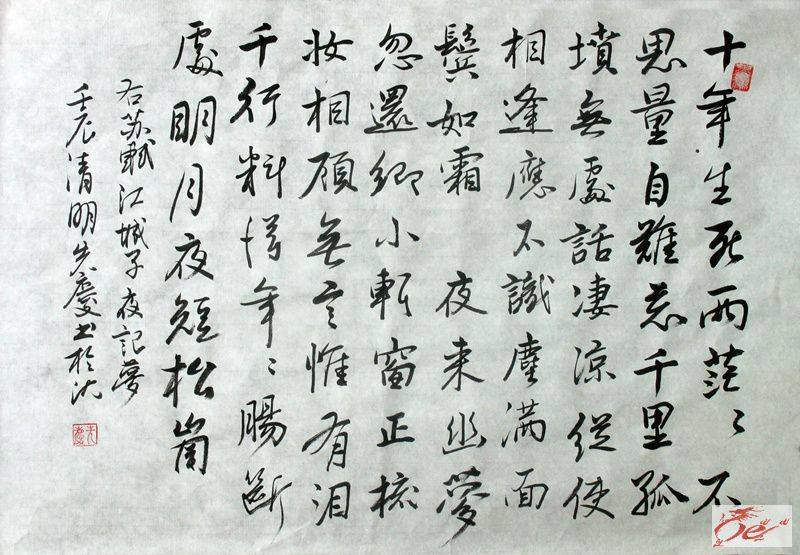 十年生死兩茫々不
思量自難忘千里孤
墳無處話凄涼從使
相逢應不識塵滿面
鬢如霜 夜来幽夢
忽還鄉小軒窗正梳
妆相顧無言惟有泪
千行料得年々腸斷
處明月夜短松崗
右苏軾江城子夜記夢
壬辰清明先慶书於沈